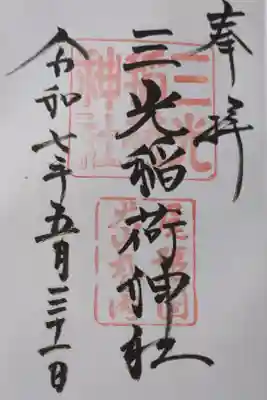 奉拝
三光稲荷神社
令和七年五月三十一日
三光
稲荷
神社